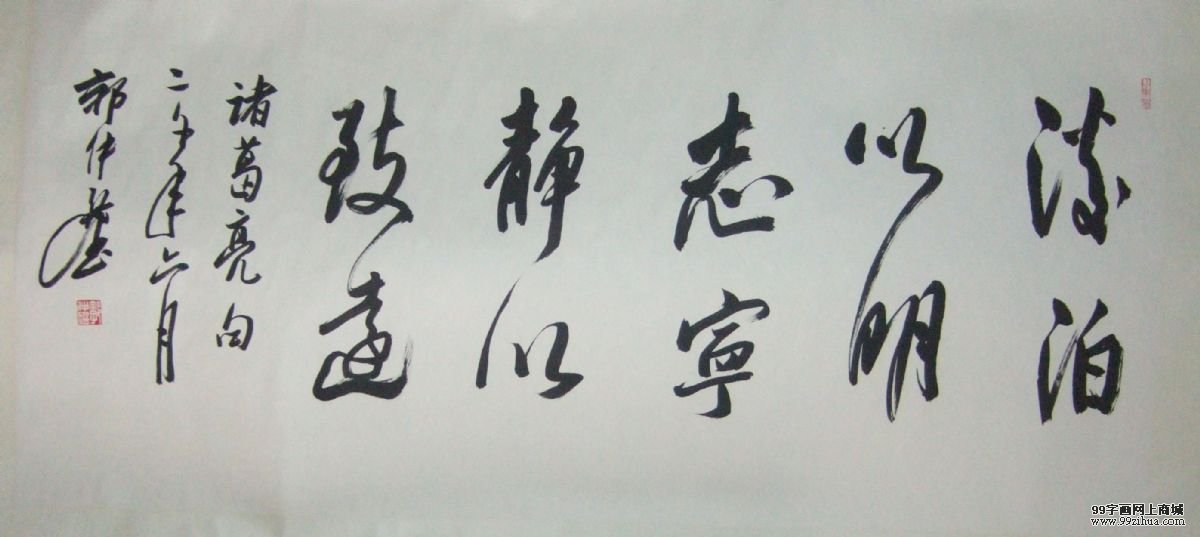 淡泊
以明
志寧
静以
致遠
諸葛亮句
二〇〇年六月
郭仲
99字画网上商城
www.99zihua.com